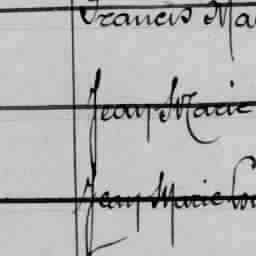 Francis Ma
Jean Marie
Jean Marie